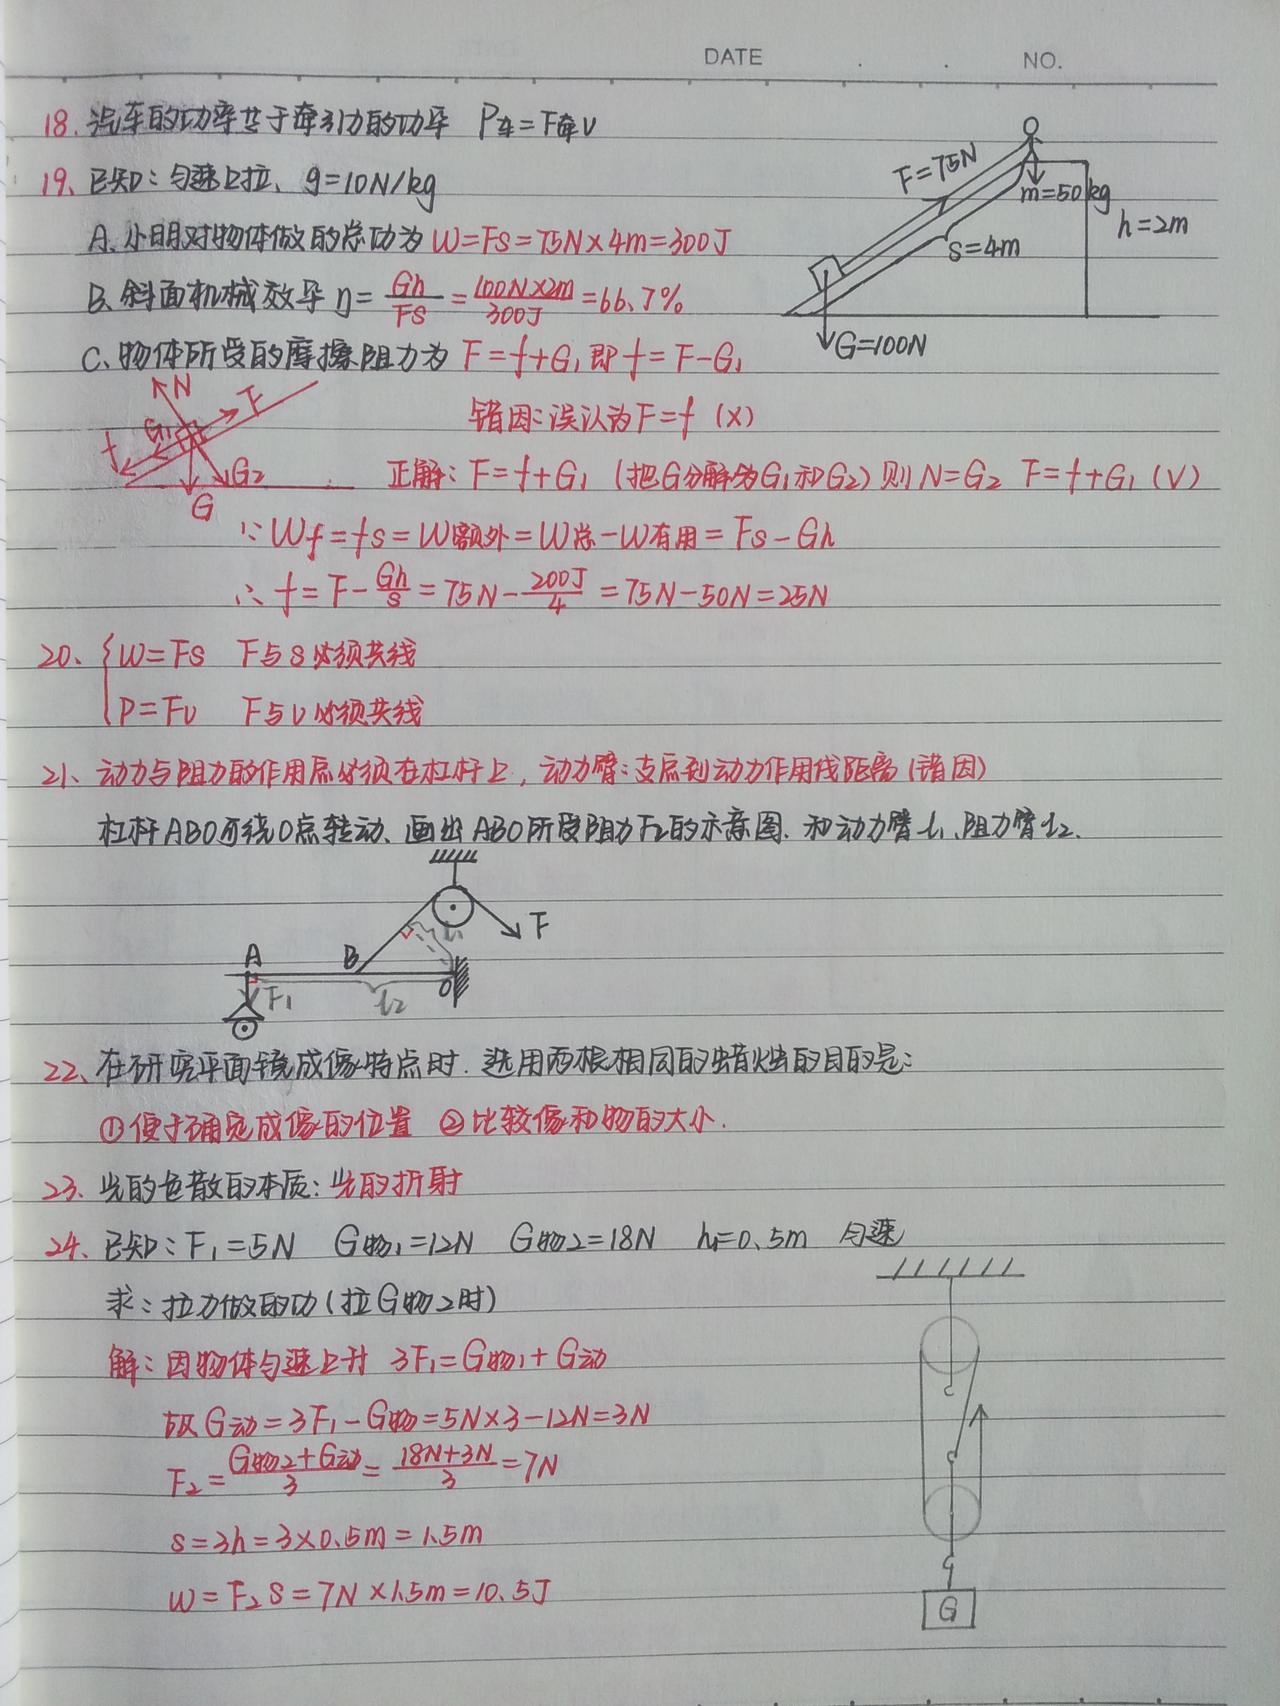 DATE . . NO.
18. 汽车的功率等于牵引力的功率 P车=F牵v
19、已知:匀速上拉、g=10N/kg
F=75N
m=50kg
h=2m
s=4m
G=100N
A、小明对物体做的总功为 W=Fs=75N×4m=300J
B、斜面机械效率 η=Gh/Fs=100N×2m/300J=66.7%
C、物体所受的摩擦阻力为 F=f+G₁即f=F-G₁
N F G₁ f G₂ G
错因:误认为F=f (×)
正解:F=f+G₁ (把G分解为G₁和G₂) 则N=G₂ F=f+G₁ (√)
∵Wf=fs=W额外=W总-W有用=Fs-Gh
∴f=F-Gh/s=75N-200J/4=75N-50N=25N
20、{W=Fs F与s必须共线
P=Fv F与v必须共线
21、动力与阻力的作用点必须在杠杆上,动力臂:支点到动力作用线距离(错因)
杠杆ABO可绕O点转动、画出ABO所受阻力F₂的示意图、和动力臂l₁、阻力臂l₂.
F
A B l₁
F₁ l₂ O
22、在研究平面镜成像特点时.选用两根相同的蜡烛的目的是:
①便于确定成像的位置 ②比较像和物的大小.
23、光的色散的本质:光的折射
24、已知:F₁=5N G物₁=12N G物₂=18N h=0.5m 匀速
求:拉力做的功(拉G物₂时)
解:因物体匀速上升 3F₁=G物₁+G动
故G动=3F₁-G物=5N×3-12N=3N
F₂=G物₂+G动/3=18N+3N/3=7N
s=3h=3×0.5m=1.5m
W=F₂s=7N×1.5m=10.5J
G